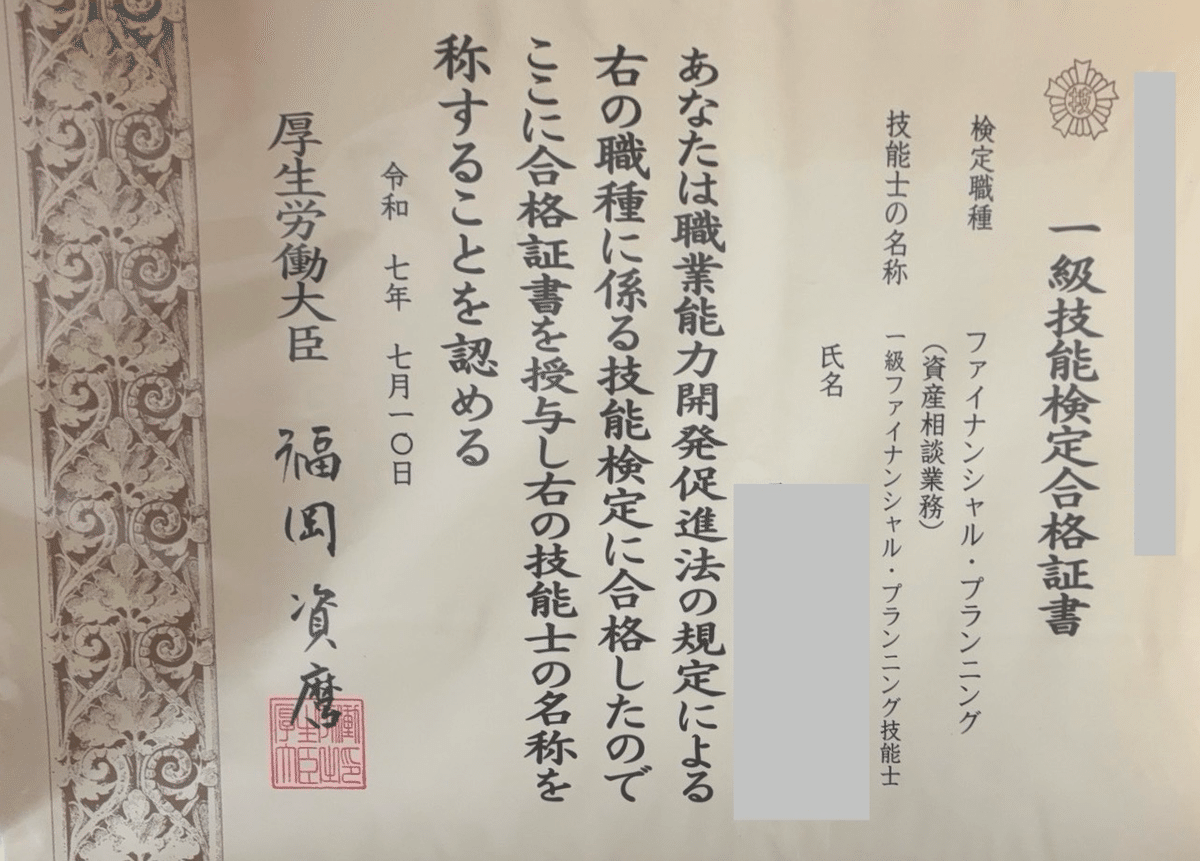 一級技能検定合格証書
検定職種 ファイナンシャル・プランニング
(資産相談業務)
技能士の名称 一級ファイナンシャル・プランニング技能士
氏名
あなたは職業能力開発促進法の規定による
右の職種に係る技能検定に合格したので
ここに合格証書を授与し右の技能士の名称を
称することを認める
令和 七年 七月一〇日
厚生労働大臣 福岡資麿